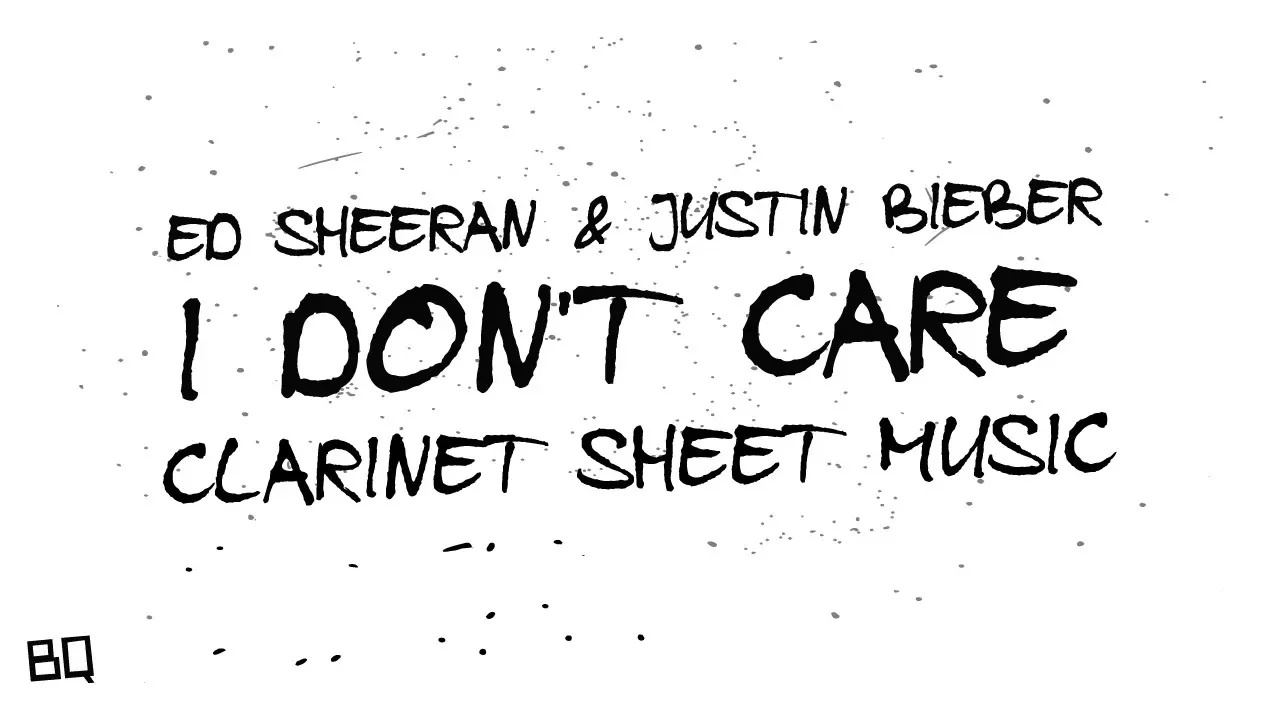 ED SHEERAN & JUSTIN BIEBER
I DON'T CARE
CLARINET SHEET MUSIC
BQ